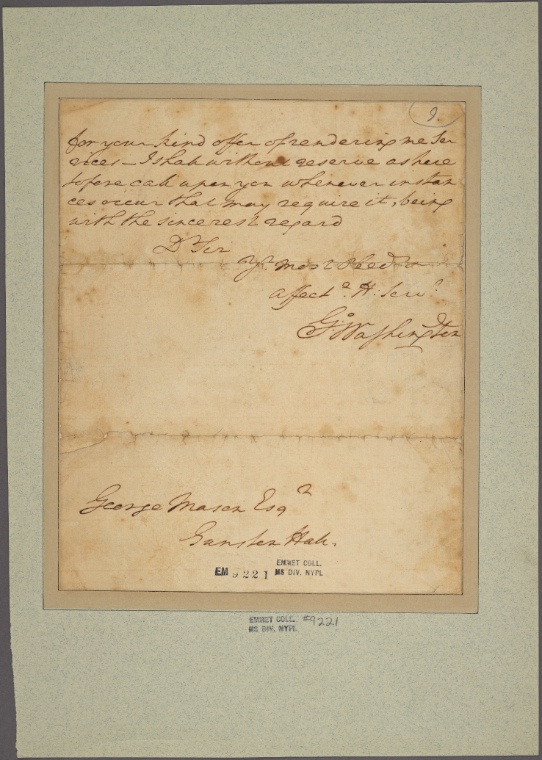 9.
for your kind offer of rendering me Ser
vices – I shall without reserve as here
tofore call upon you whenever instan
ces occur that may require it, being
with the sincerest regard
Dr Sir
Yr Most Obedt &
affecte. H: Servt.
Go Washington
George Mason Esqr
Gunston Hall.
EM 9221
EMMET COLL.
MS DIV. NYPL
EMMET COLL. #9221
MS DIV. NYPL